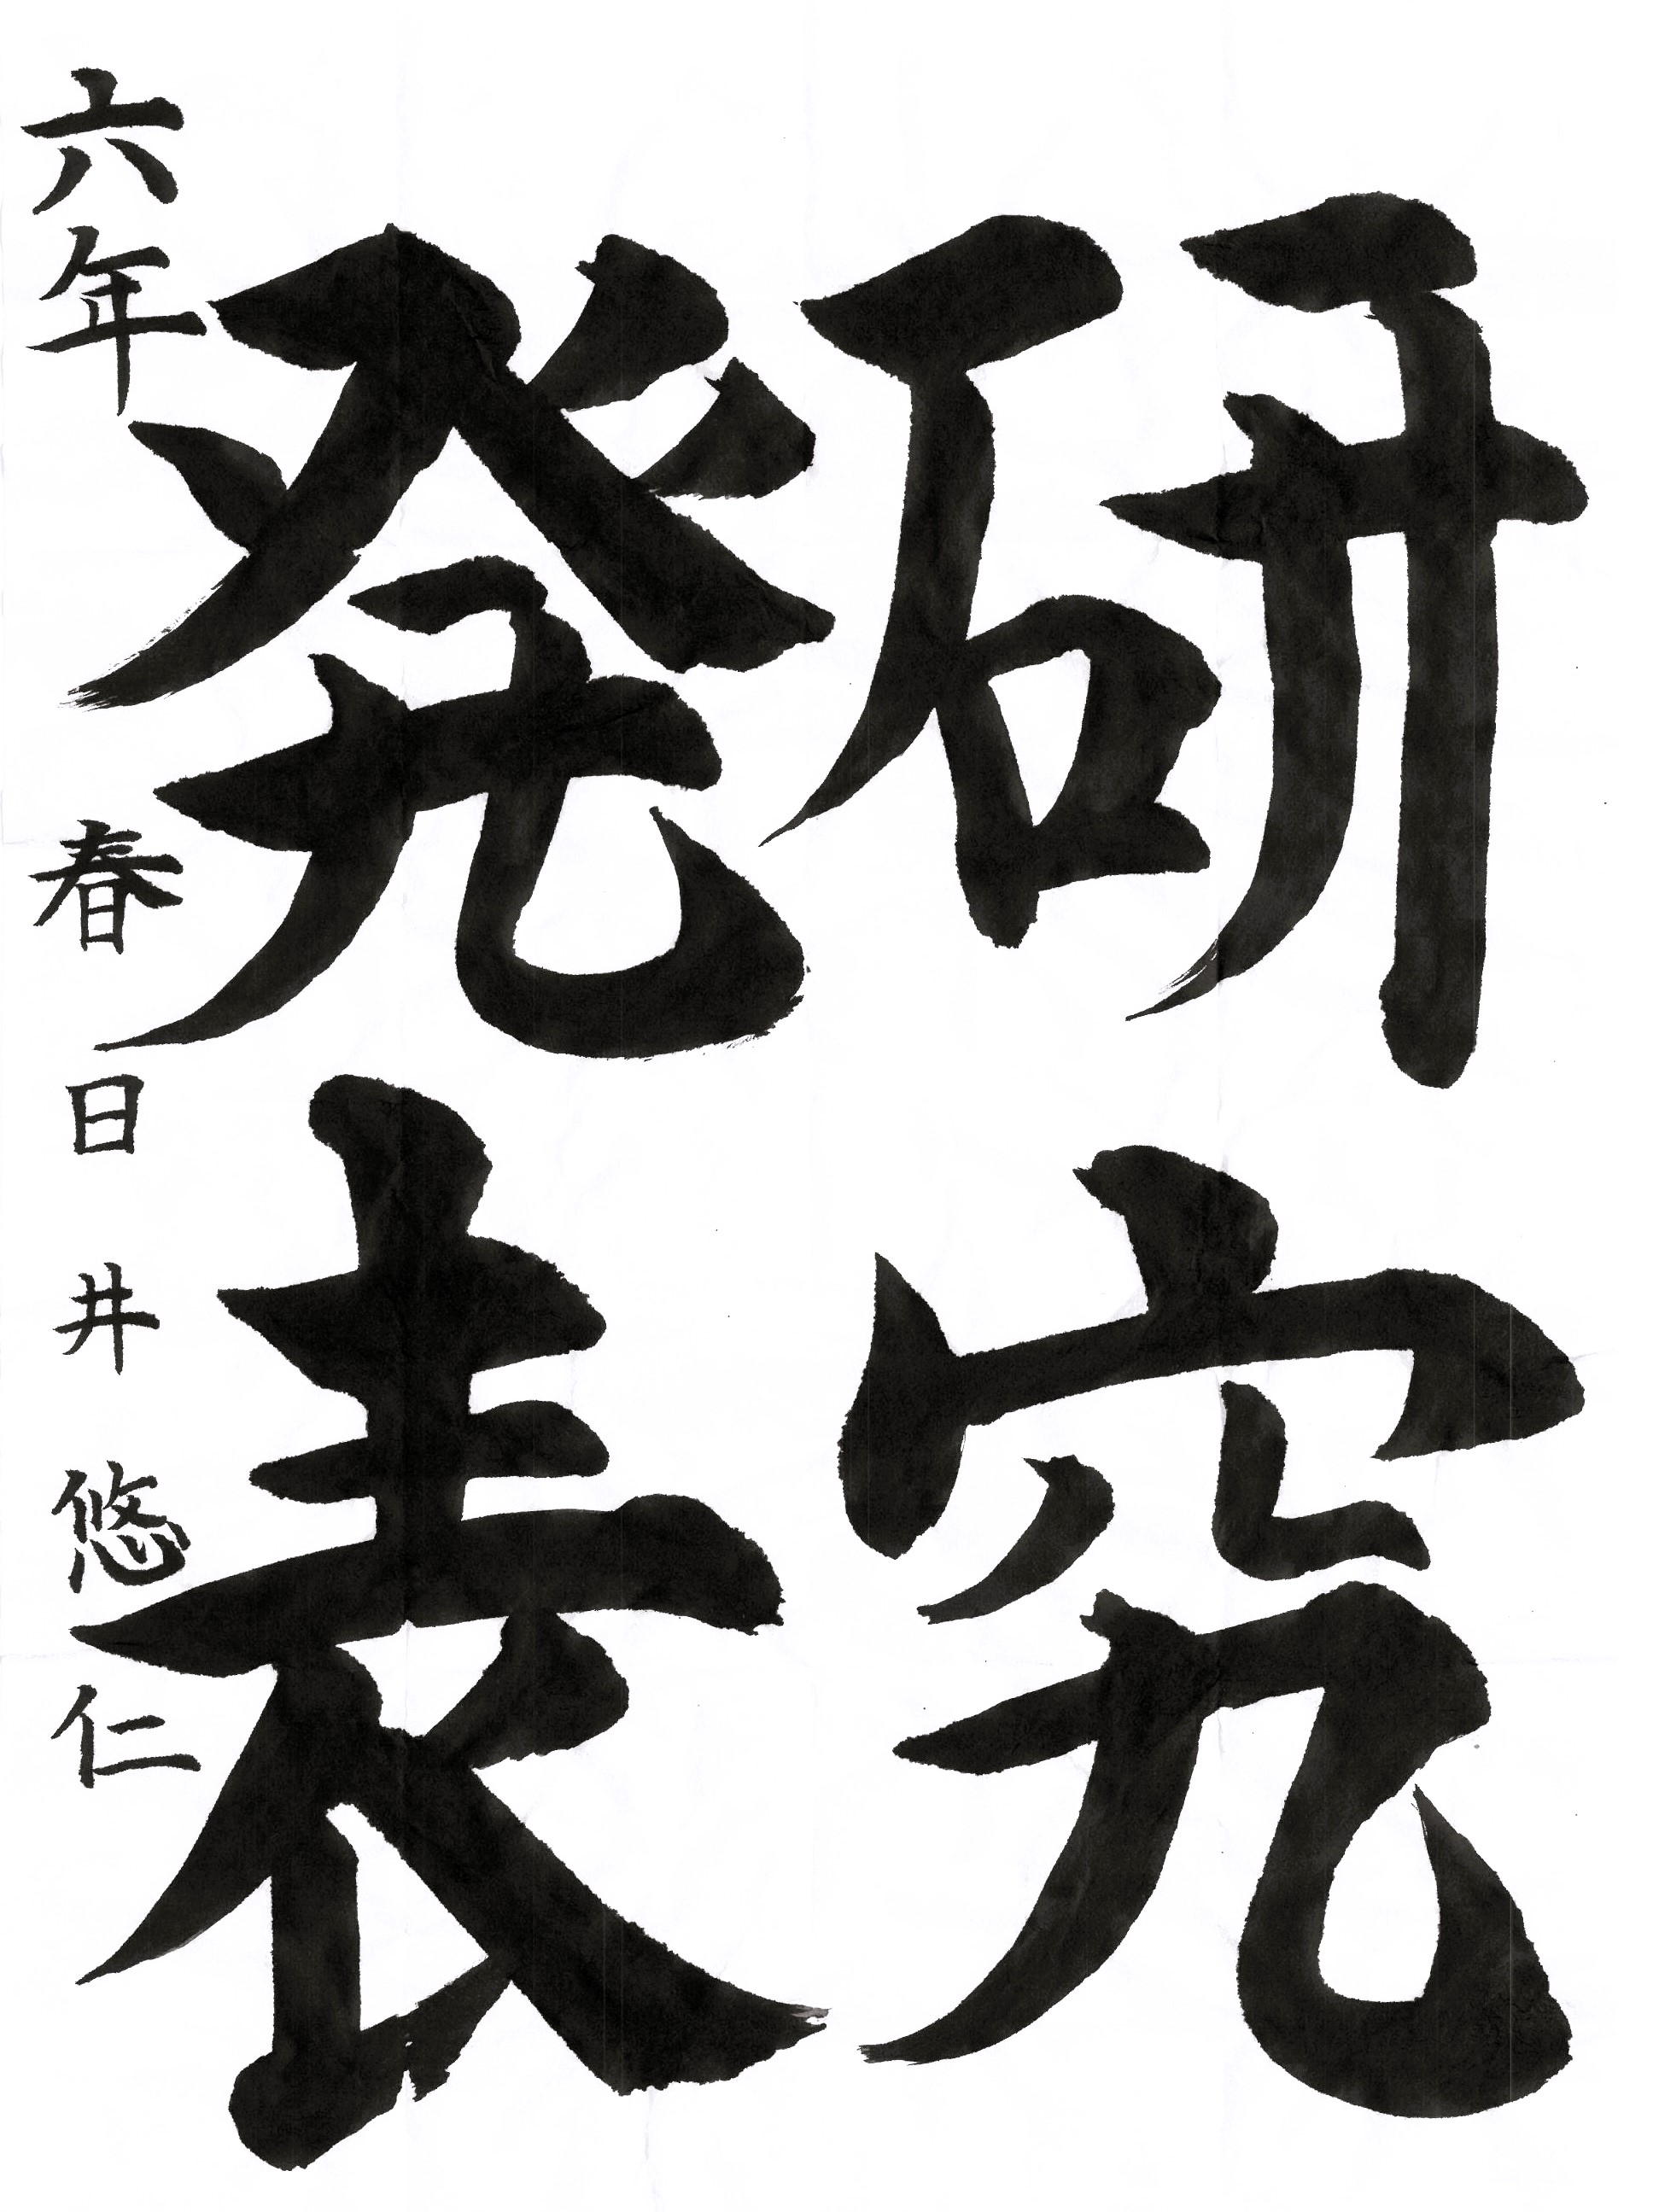 研究
発表
六年 春日井 悠仁